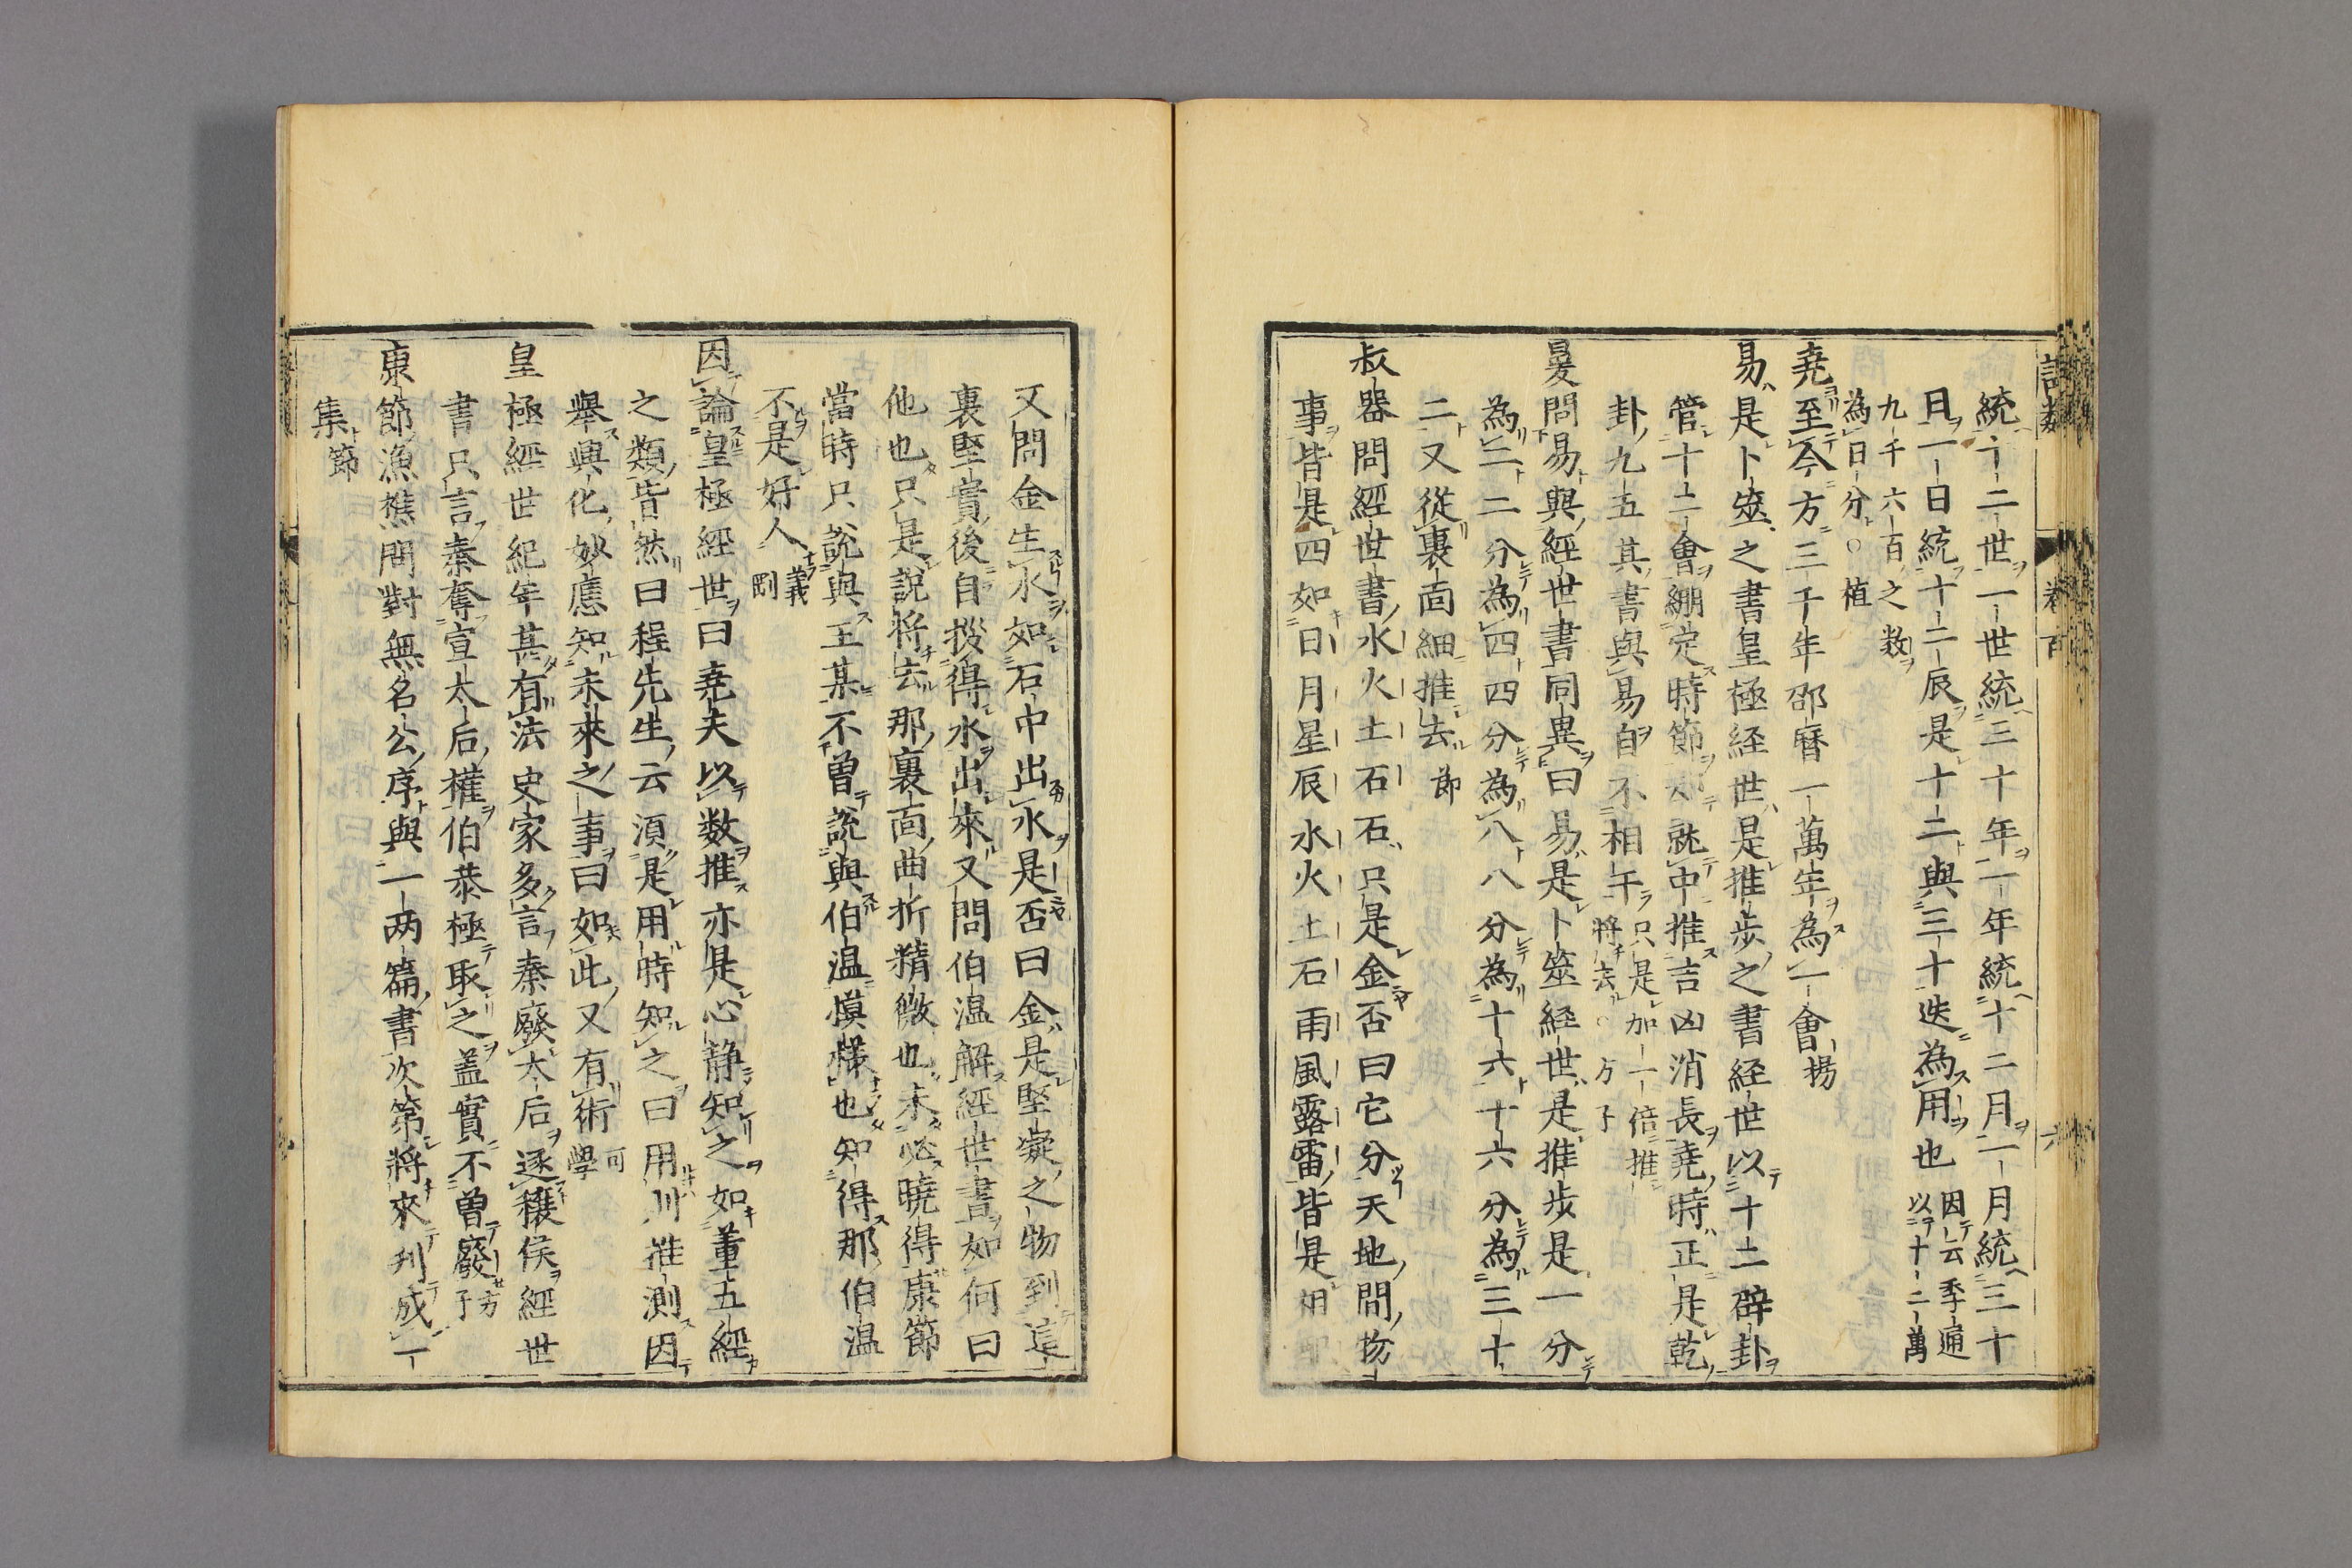 語類　卷百　六
統十二世一世統三十年一年統十二月一月統三十
日一日統十二辰是十二與三十迭為用也因云季通以十二萬
九千六百之数
為日分○植
堯至今方三千年邵曆一萬年為一會揚
易是卜筮之書皇極経世是推步之書経世以十二辟卦
管十二會綳定時節却就中推吉凶消長堯時正是乾
卦九五其書與易自不相干只是加一倍推將去○方子
晏問易與経世書同異曰易是卜筮経世是推步是一分
為二二分為四四分為八八分為十六十六分為三十
二又從裏面細推去節
叔器問經世書水火土石石只是金否曰它分天地間物
事皆是四如日月星辰水火土石雨風露雷皆是相
又問金生水如石中出水是否曰金是堅凝之物到這
裏堅實後自拶得水出來又問伯温解經世書如何曰
他也只是說將去那裏面曲折精微也未必曉得康節
當時只說與王某不曽說與伯温模樣也知得那伯温
不是好人義剛
因論皇極經世曰堯夫以数推亦是心静知之如董五經
之類皆然曰程先生云須是用時知之曰用則推測因
舉興化妙應知未來之事曰如此又有術可學
皇極經世紀年甚有法史家多言秦廢太后逐穰侯經世
書只言秦奪宣太后權伯恭極取之盖實不曽廢方子
康節漁樵問對無名公序與一两篇書次第將來刋成一
集節